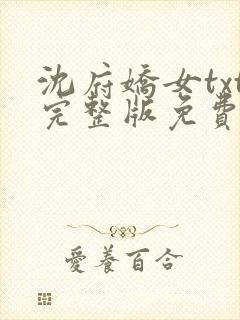 沈府嬌女txt
完整版免費
愛養百合